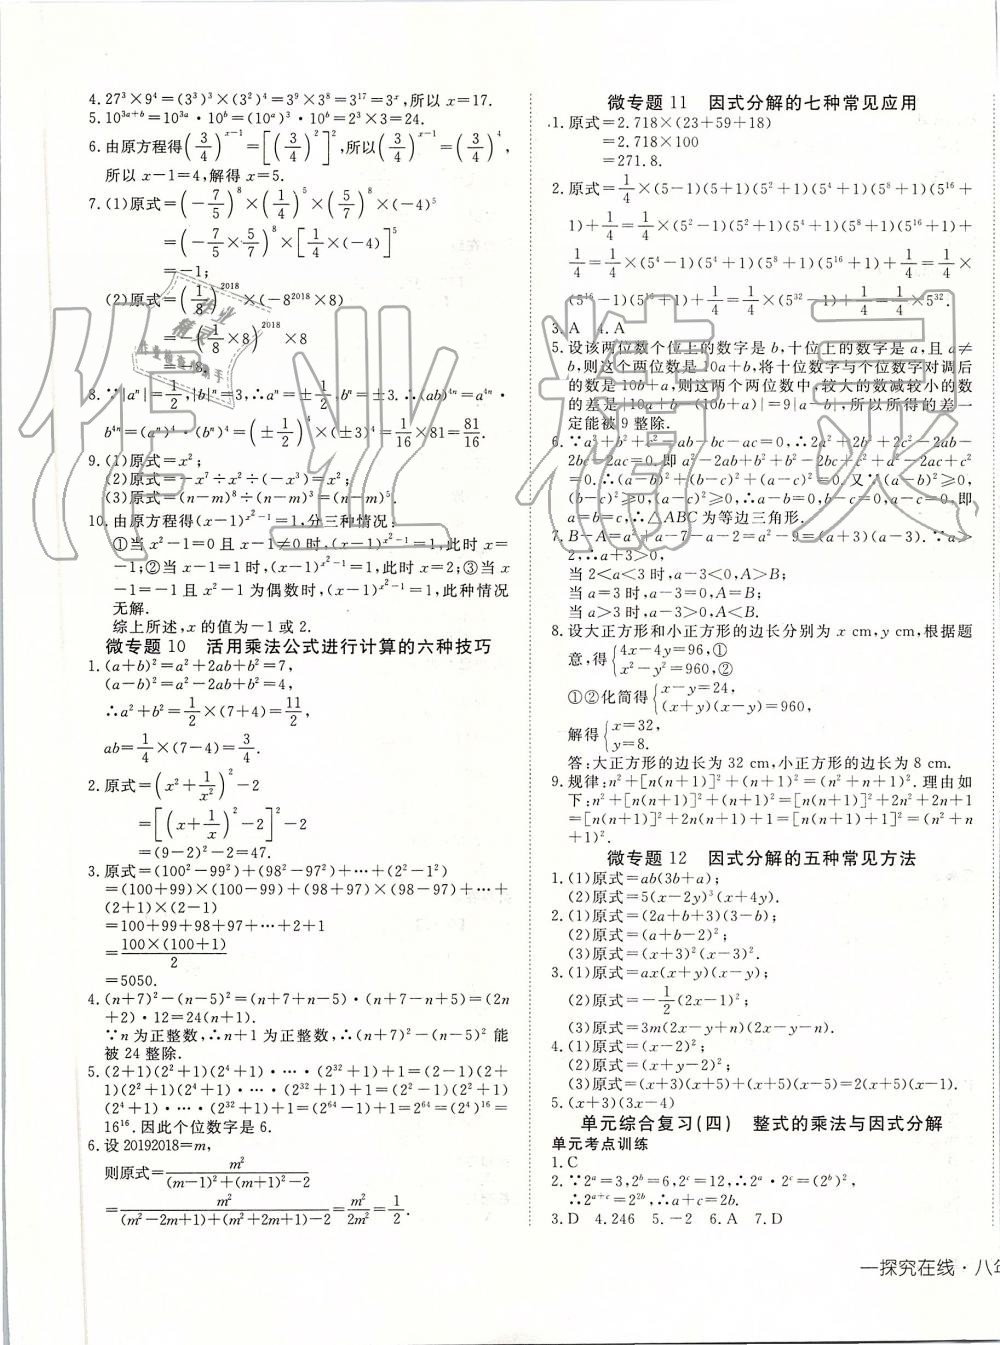 4. 27³×9⁴=(3³)³×(3²)⁴=3⁹×3⁸=3¹⁷=3ˣ,所以 x=17.
5. 10³ᵃ⁺ᵇ=10³ᵃ·10ᵇ=(10ᵃ)³·10ᵇ=2³×3=24.
6. 由原方程得(3/4)^(x-1)=[(3/4)²]²,所以(3/4)^(x-1)=(3/4)⁴,
所以 x-1=4,解得 x=5.
7. (1)原式=(-7/5)⁸×(1/4)⁵×(5/7)⁸×(-4)⁵
=(-7/5×5/7)⁸×[1/4×(-4)]⁵
=-1;
(2)原式=(1/8)^2018×(-8^2018×8)
=-(1/8×8)^2018×8
=-8.
8. ∵|aⁿ|=1/2,|b|ⁿ=3,∴aⁿ=±1/2,bⁿ=±3.∴(ab)⁴ⁿ=a⁴ⁿ·
b⁴ⁿ=(aⁿ)⁴·(bⁿ)⁴=(±1/2)⁴×(±3)⁴=1/16×81=81/16.
9. (1)原式=x²;
(2)原式=-x⁷÷x²÷(-x³)=x²;
(3)原式=(n-m)⁸÷(n-m)³=(n-m)⁵.
10. 由原方程得(x-1)^(x²-1)=1,分三种情况:
①当 x²-1=0 且 x-1≠0 时,(x-1)^(x²-1)=1,此时 x=
-1;②当 x-1=1 时,(x-1)^(x²-1)=1,此时 x=2;③当 x
-1=-1 且 x²-1 为偶数时,(x-1)^(x²-1)=1,此种情况
无解.
综上所述,x 的值为-1 或 2.
微专题 10 活用乘法公式进行计算的六种技巧
1. (a+b)²=a²+2ab+b²=7,
(a-b)²=a²-2ab+b²=4,
∴a²+b²=1/2×(7+4)=11/2,
ab=1/4×(7-4)=3/4.
2. 原式=(x²+1/x²)²-2
=[(x+1/x)²-2]²-2
=(9-2)²-2=47.
3. 原式=(100²-99²)+(98²-97²)+…+(2²-1²)
=(100+99)×(100-99)+(98+97)×(98-97)+…+
(2+1)×(2-1)
=100+99+98+97+…+2+1
=100×(100+1)/2
=5050.
4. (n+7)²-(n-5)²=(n+7+n-5)·(n+7-n+5)=(2n
+2)·12=24(n+1).
∵n 为正整数,∴n+1 为正整数,∴(n+7)²-(n-5)² 能
被 24 整除.
5. (2+1)(2²+1)(2⁴+1)·…·(2³²+1)+1=(2-1)(2+
1)(2²+1)(2⁴+1)·…·(2³²+1)+1=(2²-1)(2²+1)
(2⁴+1)·…·(2³²+1)+1=(2⁶⁴-1)+1=2⁶⁴=(2⁴)¹⁶=
16¹⁶.因此个位数字是 6.
6. 设 20192018=m,
则原式=m²/[(m-1)²+(m+1)²-2]
=m²/[(m²-2m+1)+(m²+2m+1)-2]=m²/2m²=1/2.
微专题 11 因式分解的七种常见应用
1. 原式=2.718×(23+59+18)
=2.718×100
=271.8.
2. 原式=1/4×(5-1)(5+1)(5²+1)(5⁴+1)(5⁸+1)(5¹⁶+
1)+1/4=1/4×(5²-1)(5²+1)(5⁴+1)(5⁸+1)(5¹⁶+1)+
1/4=1/4×(5⁴-1)(5⁴+1)(5⁸+1)(5¹⁶+1)+1/4=1/4×
(5¹⁶-1)(5¹⁶+1)+1/4=1/4×(5³²-1)+1/4=1/4×5³².
3. A 4. A
5. 设该两位数个位上的数字是 b,十位上的数字是 a,且 a≠
b,则这个两位数是 10a+b,将十位数字与个位数字对调后
的数是 10b+a,则这两个两位数中,较大的数减较小的数
的差是|10a+b-(10b+a)|=9|a-b|,所以所得的差一
定能被 9 整除.
6. ∵a²+b²+c²-ab-bc-ac=0,∴2a²+2b²+2c²-2ab-
2bc-2ac=0.即 a²-2ab+b²+b²-2bc+c²+a²-2ac+c²
=0.∴(a-b)²+(b-c)²+(a-c)²=0.又∵(a-b)²≥0,
(b-c)²≥0,(a-c)²≥0,∴a-b=0,b-c=0,a-c=0,即
a=b=c,∴△ABC 为等边三角形.
7. B-A=a²+a-7-a-2=a²-9=(a+3)(a-3).∵a>
2,∴a+3>0,
当 2<a<3 时,a-3<0,A>B;
当 a=3 时,a-3=0,A=B;
当 a>3 时,a-3>0,A<B.
8. 设大正方形和小正方形的边长分别为 x cm,y cm,根据题
意,得{4x-4y=96,①
x²-y²=960,②
①②化简得{x-y=24,
(x+y)(x-y)=960,
解得{x=32,
y=8.
答:大正方形的边长为 32 cm,小正方形的边长为 8 cm.
9. 规律:n²+[n(n+1)]²+(n+1)²=(n²+n+1)².理由如
下:n²+[n(n+1)]²+(n+1)²=[n(n+1)]²+2n²+2n+1
=[n(n+1)]²+2n(n+1)+1=[n(n+1)+1]²=(n²+n
+1)².
微专题 12 因式分解的五种常见方法
1. (1)原式=ab(3b+a);
(2)原式=5(x-2y)³(x+4y).
2. (1)原式=(2a+b+3)(3-b);
(2)原式=(a+b-2)²;
(3)原式=(x+3)²(x-3)².
3. (1)原式=ax(x+y)(x-y);
(2)原式=-1/2(2x-1)²;
(3)原式=3m(2x-y+n)(2x-y-n).
4. (1)原式=(x-2)²;
(2)原式=(x+y-2)²;
(3)原式=(x+3)(x+5)+(x+5)(x-5)=2(x+5)(x-1).
5. (x+3)(3x-4)
单元综合复习(四) 整式的乘法与因式分解
单元考点训练
1. C
2. ∵2ᵃ=3,2ᵇ=6,2ᶜ=12,∴2ᵃ·2ᶜ=(2ᵇ)²,
∴2ᵃ⁺ᶜ=2²ᵇ,∴a+c=2b.
3. D 4. 246 5. -2 6. A 7. D
一探究在线·八年
作业精灵